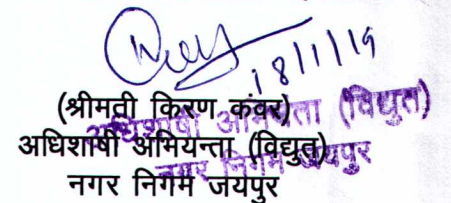 18/1/19
(श्रीमती किरण कंवर)
अधिशाषी अभियन्ता (विद्युत)
नगर निगम जयपुर
अधिशाषी अभियन्ता (विद्युत)
नगर निगम जयपुर